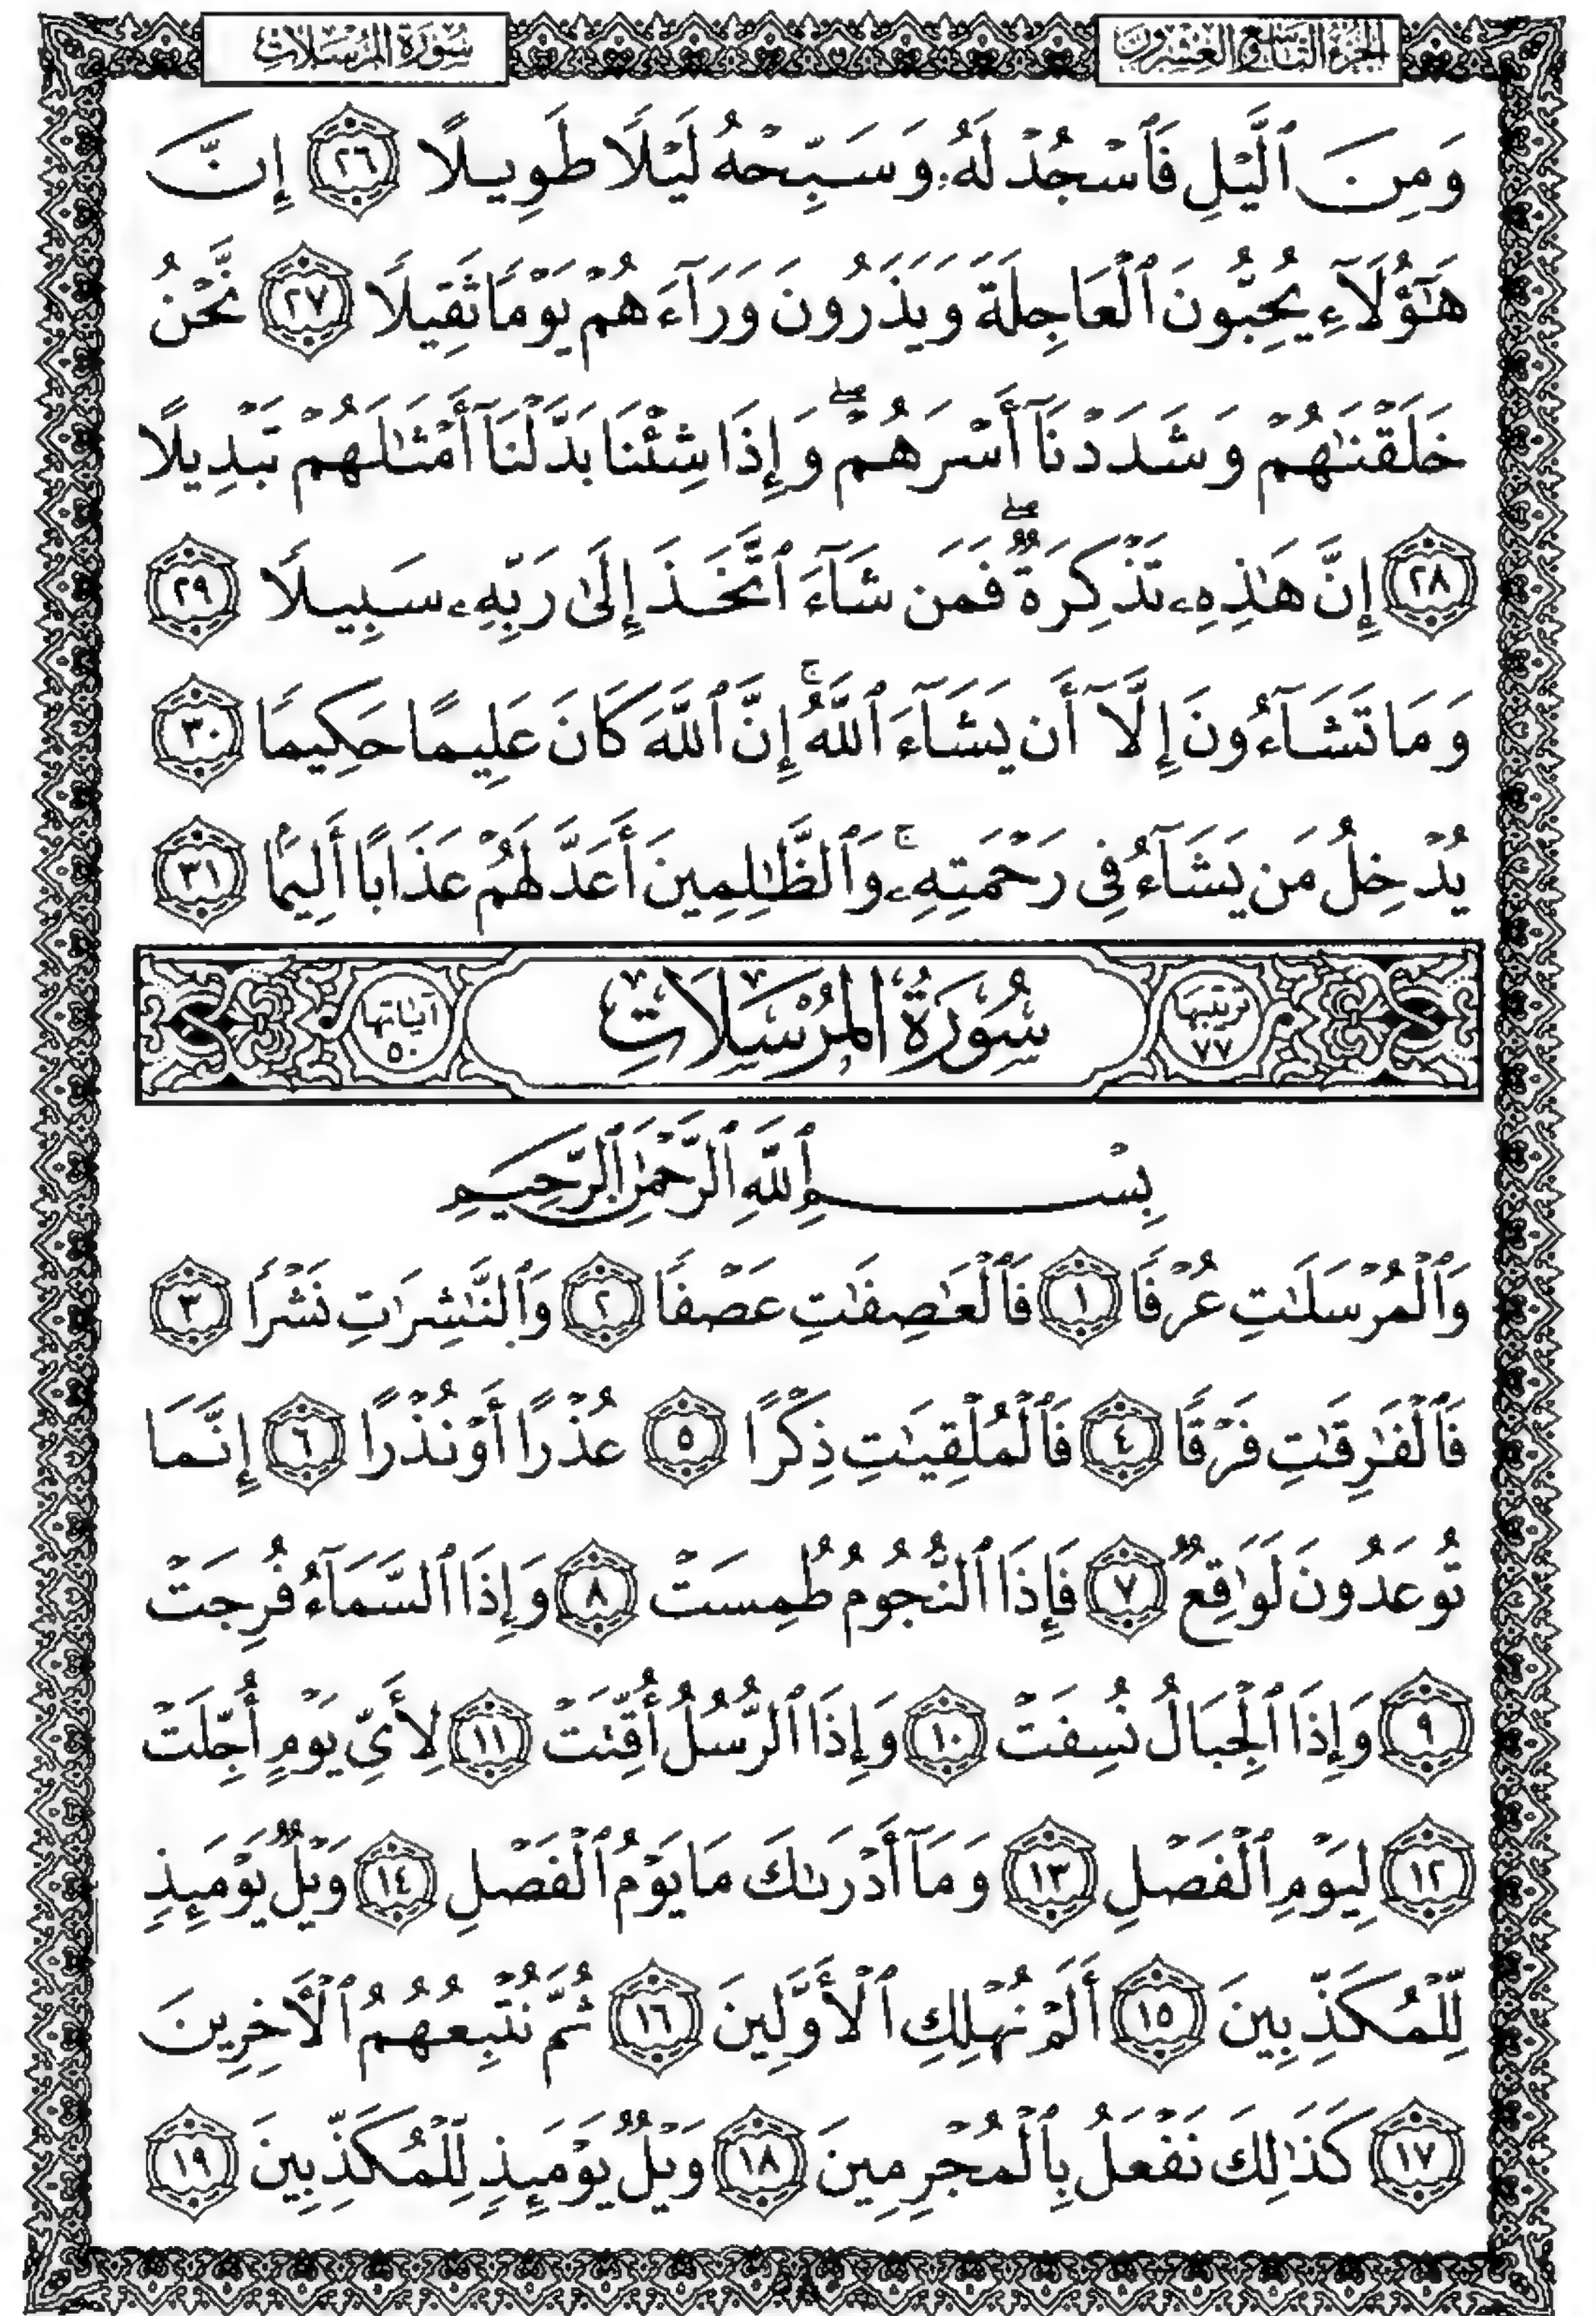 الجزء التاسع والعشرون
سورة المرسلات
وَمِنَ ٱلَّيْلِ فَٱسْجُدْ لَهُۥ وَسَبِّحْهُ لَيْلًا طَوِيلًا ٢٦ إِنَّ
هَٰٓؤُلَآءِ يُحِبُّونَ ٱلْعَاجِلَةَ وَيَذَرُونَ وَرَآءَهُمْ يَوْمًا ثَقِيلًا ٢٧ نَّحْنُ
خَلَقْنَٰهُمْ وَشَدَدْنَآ أَسْرَهُمْ ۖ وَإِذَا شِئْنَا بَدَّلْنَآ أَمْثَٰلَهُمْ تَبْدِيلًا
٢٨ إِنَّ هَٰذِهِۦ تَذْكِرَةٌ ۖ فَمَن شَآءَ ٱتَّخَذَ إِلَىٰ رَبِّهِۦ سَبِيلًا ٢٩
وَمَا تَشَآءُونَ إِلَّآ أَن يَشَآءَ ٱللَّهُ ۚ إِنَّ ٱللَّهَ كَانَ عَلِيمًا حَكِيمًا ٣٠
يُدْخِلُ مَن يَشَآءُ فِى رَحْمَتِهِۦ ۚ وَٱلظَّٰلِمِينَ أَعَدَّ لَهُمْ عَذَابًا أَلِيمًۢا ٣١
ترتيبها ٧٧ سُورَةُ المُرْسَلَاتِ آياتها ٥٠
بِسْمِ ٱللَّهِ ٱلرَّحْمَٰنِ ٱلرَّحِيمِ
وَٱلْمُرْسَلَٰتِ عُرْفًا ١ فَٱلْعَٰصِفَٰتِ عَصْفًا ٢ وَٱلنَّٰشِرَٰتِ نَشْرًا ٣
فَٱلْفَٰرِقَٰتِ فَرْقًا ٤ فَٱلْمُلْقِيَٰتِ ذِكْرًا ٥ عُذْرًا أَوْ نُذْرًا ٦ إِنَّمَا
تُوعَدُونَ لَوَٰقِعٌ ٧ فَإِذَا ٱلنُّجُومُ طُمِسَتْ ٨ وَإِذَا ٱلسَّمَآءُ فُرِجَتْ
٩ وَإِذَا ٱلْجِبَالُ نُسِفَتْ ١٠ وَإِذَا ٱلرُّسُلُ أُقِّتَتْ ١١ لِأَىِّ يَوْمٍ أُجِّلَتْ
١٢ لِيَوْمِ ٱلْفَصْلِ ١٣ وَمَآ أَدْرَىٰكَ مَا يَوْمُ ٱلْفَصْلِ ١٤ وَيْلٌ يَوْمَئِذٍ
لِّلْمُكَذِّبِينَ ١٥ أَلَمْ نُهْلِكِ ٱلْأَوَّلِينَ ١٦ ثُمَّ نُتْبِعُهُمُ ٱلْءَاخِرِينَ
١٧ كَذَٰلِكَ نَفْعَلُ بِٱلْمُجْرِمِينَ ١٨ وَيْلٌ يَوْمَئِذٍ لِّلْمُكَذِّبِينَ ١٩